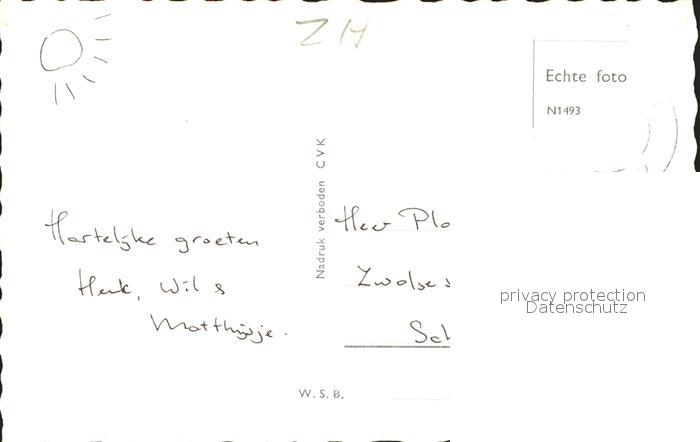 ZH
Echte foto
N1493
Nadruk verboden CVK
Hartelijke groeten
Henk, Wil &
Matthijsje.
Heer Plo
Zwolse s
Sch
privacy protection
Datenschutz
W. S. B.